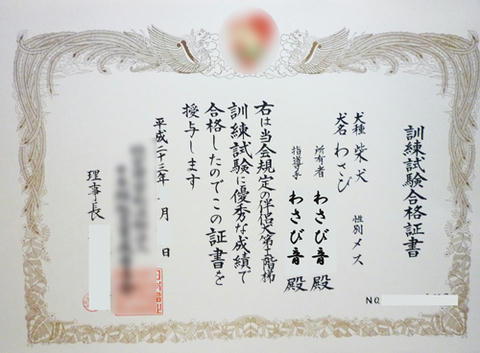 訓練試験合格証書
犬種 柴犬 性別 メス
犬名 わさび
所有者 わさび音 殿
指導手 わさび音 殿
右は当会規定の伴侶犬第階梯
訓練試験に優秀な成績で
合格したのでこの証書を
授与します
平成二十三年 月 日
理事長
NO